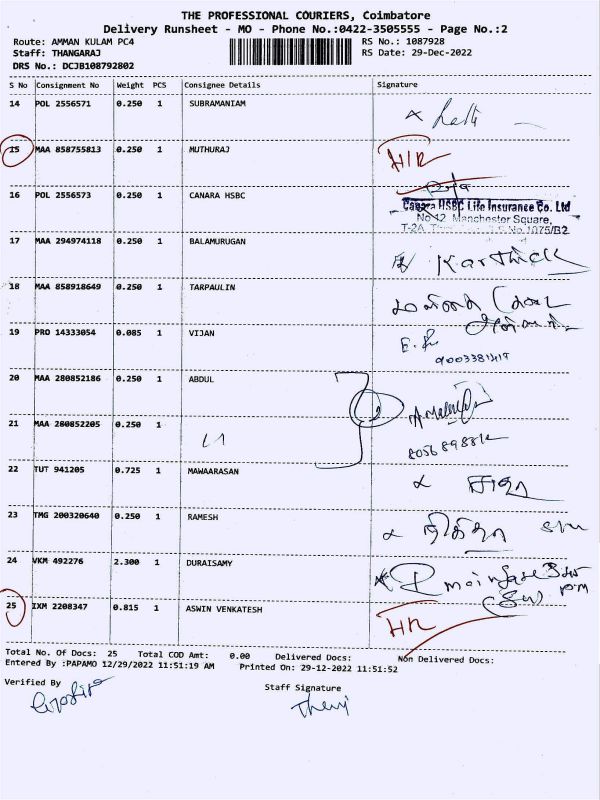 THE PROFESSIONAL COURIERS, Coimbatore
Delivery Runsheet - MO - Phone No.:0422-3505555 - Page No.:2
Route: AMMAN KULAM PC4
RS No.: 1087928
Staff: THANGARAJ
RS Date: 29-Dec-2022
DRS No.: DCJB108792802
S No Consignment No Weight PCS Consignee Details Signature
14 POL 2556571 0.250 1 SUBRAMANIAM
15 MAA 858755813 0.250 1 MUTHURAJ
16 POL 2556573 0.250 1 CANARA HSBC
Canara HSBC Life Insurance Co. Ltd
No 42 Manchester Square,
17 MAA 294974118 0.250 1 BALAMURUGAN Karthick
18 MAA 858918649 0.250 1 TARPAULIN
19 PRO 14333054 0.085 1 VIJAN
20 MAA 280852186 0.250 1 ABDUL
21 MAA 280852205 0.250 1
22 TUT 941205 0.725 1 MAWAARASAN
23 TMG 200320640 0.250 1 RAMESH
24 VKM 492276 2.300 1 DURAISAMY
25 IXM 2208347 0.815 1 ASWIN VENKATESH
Total No. Of Docs: 25 Total COD Amt: 0.00 Delivered Docs: Non Delivered Docs:
Entered By :PAPAMO 12/29/2022 11:51:19 AM Printed On: 29-12-2022 11:51:52
Verified By
Staff Signature